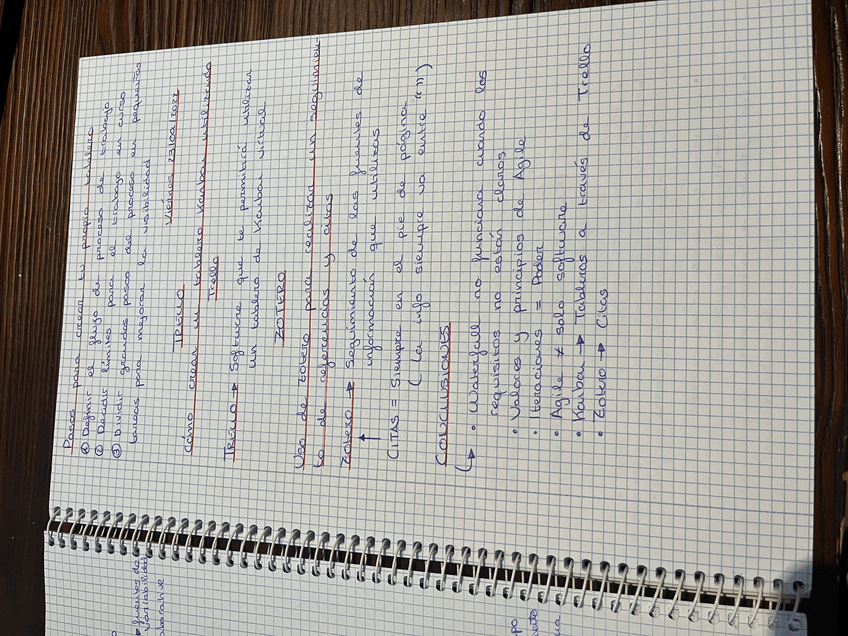 Pasos para crear tu propio tablero
① Definir el flujo de proceso de trabajo
② Decidir límites para el trabajo en curso
③ Dividir grandes pasos del proceso en pequeñas
tareas para mejorar la visibilidad
Viernes 23/09/2022
TRELLO
Cómo crear un tablero Kanban utilizando
Trello
TRELLO → Software que te permitirá utilizar
un tablero de Kanban virtual
ZOTERO
Uso de Zotero para realizar un seguimien-
to de referencias y citas
Zotero → Seguimiento de las fuentes de
información que utilizas
CITAS = Siempre en el pie de página
(La info siempre va entre " ")
CONCLUSIONES
↳ • Waterfall no funciona cuando los
requisitos no están claros
• Valores y principios de Agile
• Iteraciones = Poder
• Agile ≠ solo software
• Kanban → Tableros a través de Trello
• Zotero → Citas
fuentes de
variabilidad